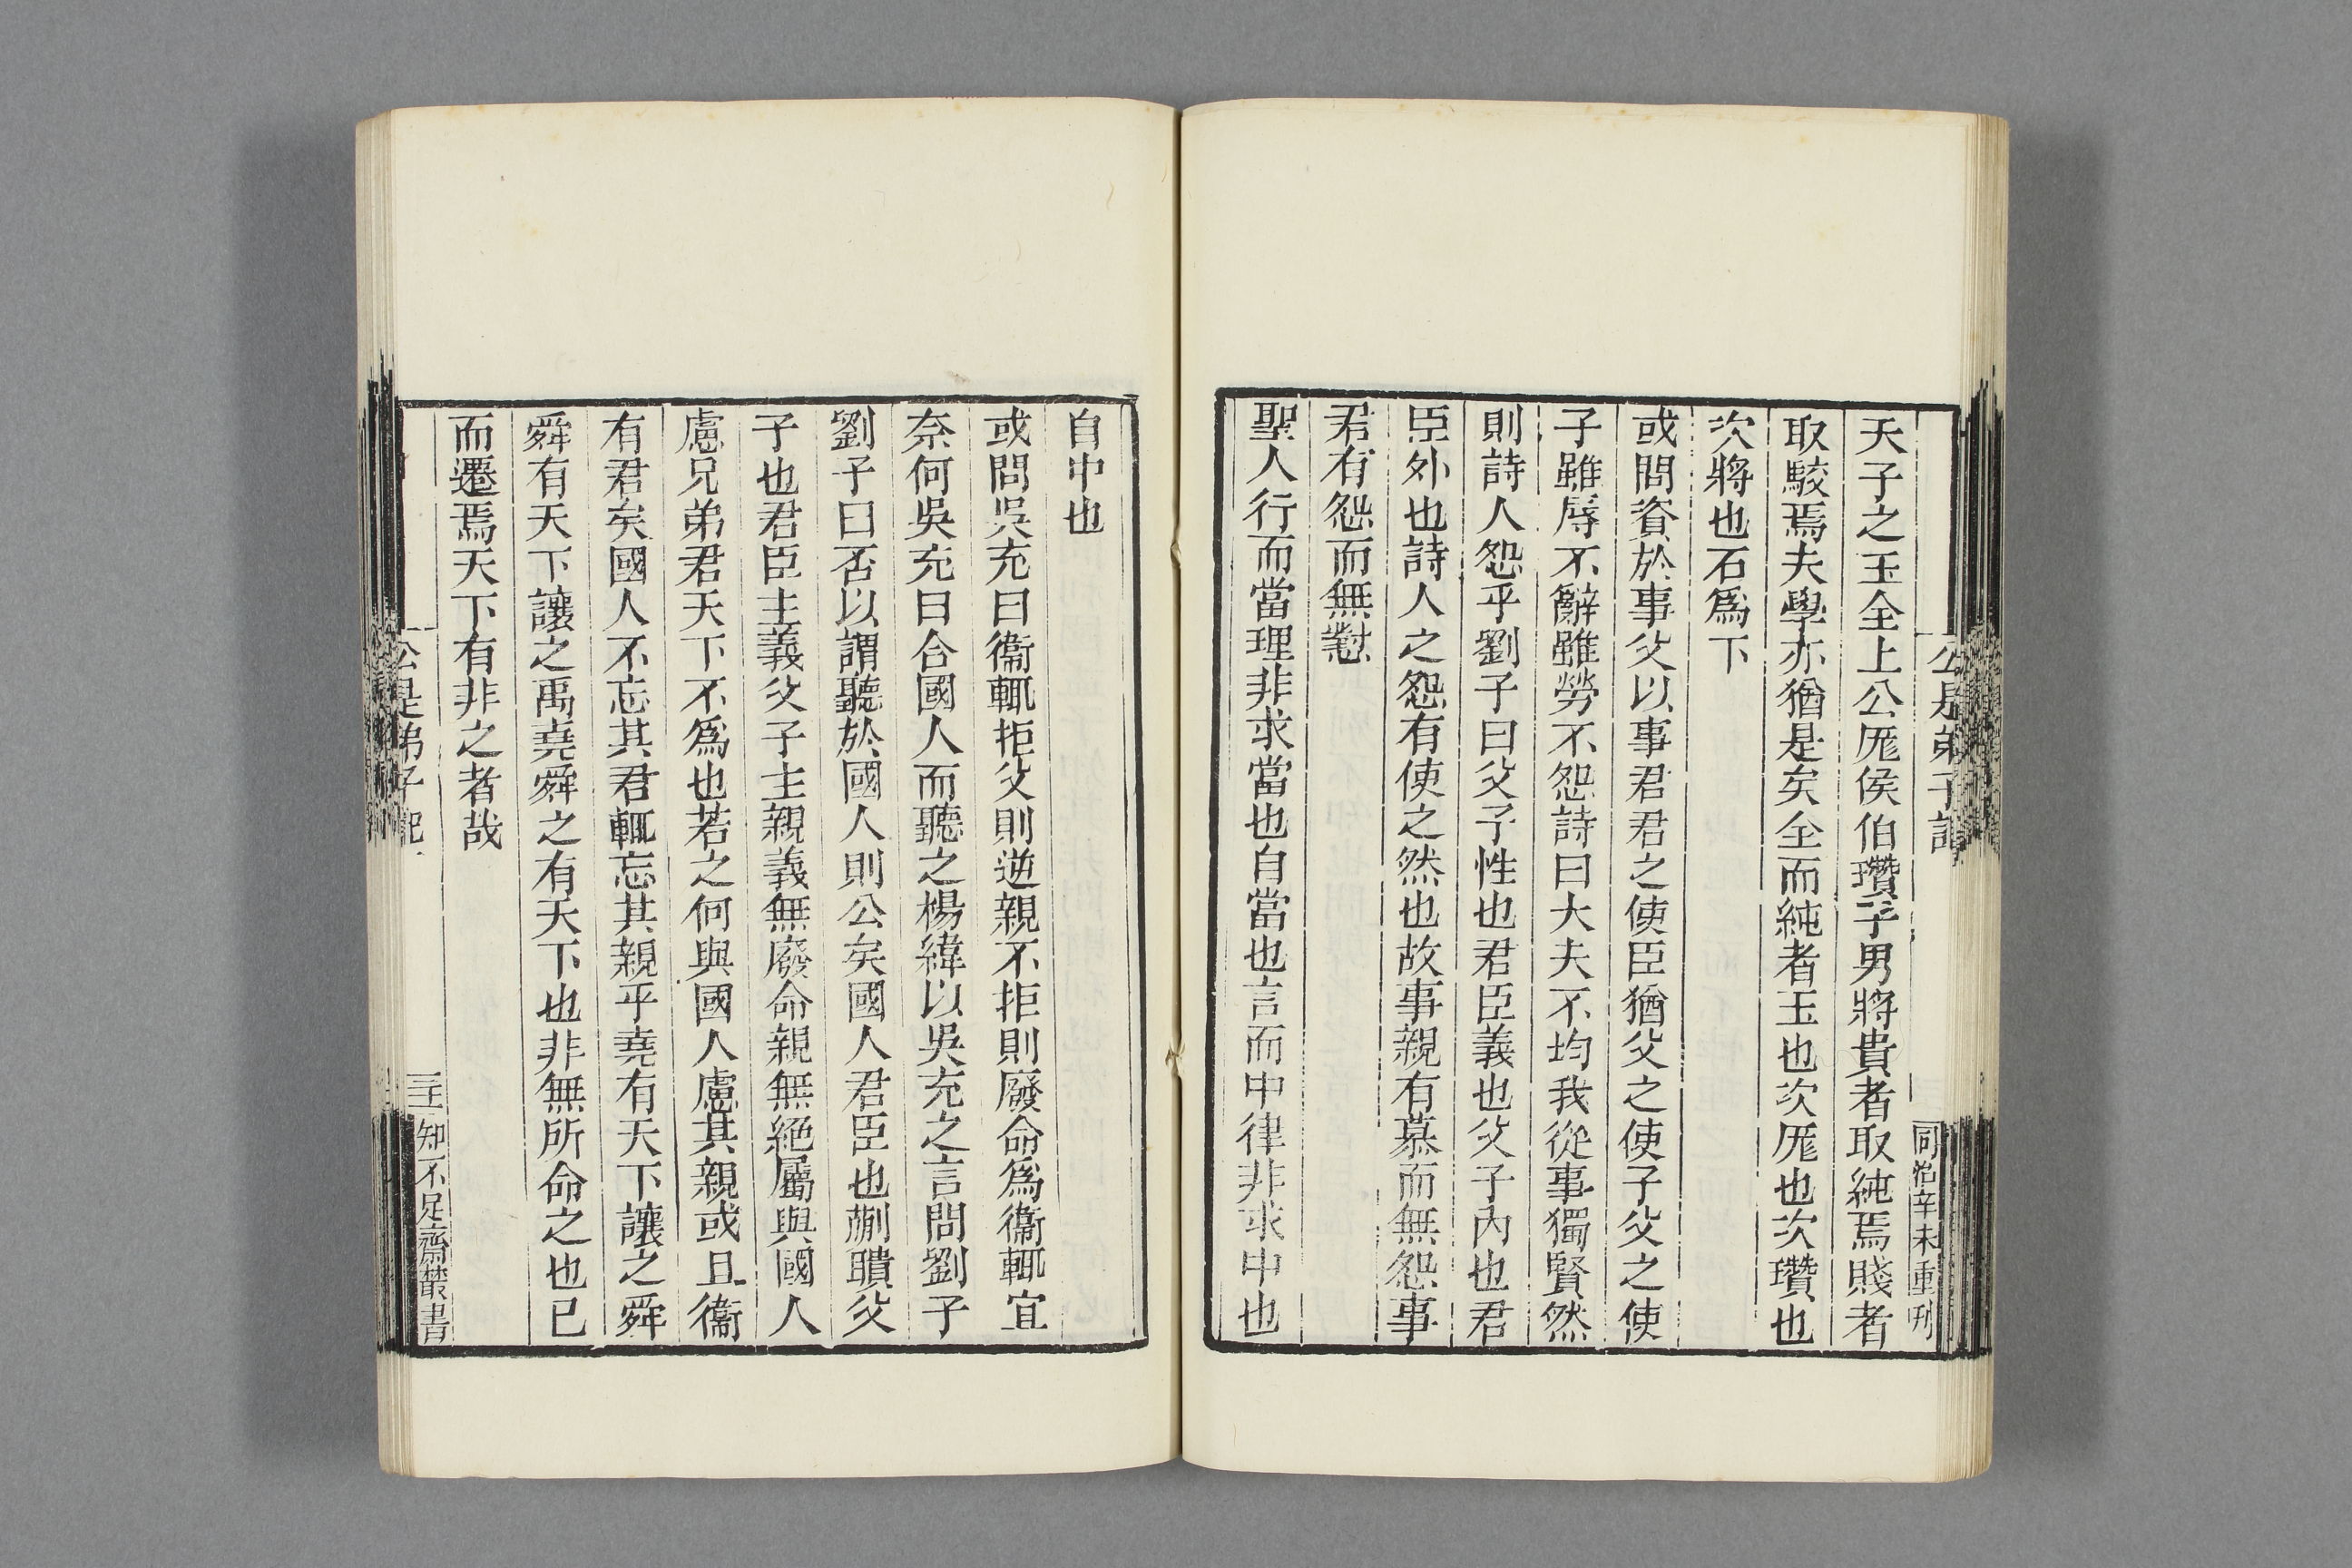 公是弟子記
同治辛未重刋
天子之玉全上公厖侯伯瓚子男將貴者取純焉賤者
取駮焉夫學亦猶是矣全而純者玉也次厖也次瓚也
次將也石爲下
或問資於事父以事君君之使臣猶父之使子父之使
子雖辱不辭雖勞不怨詩曰大夫不均我從事獨賢然
則詩人怨乎劉子曰父子性也君臣義也父子內也君
臣外也詩人之怨有使之然也故事親有慕而無怨事
君有怨而無懟
聖人行而當理非求當也自當也言而中律非求中也
自中也
或問吳充曰衞輒拒父則逆親不拒則廢命爲衞輒宜
奈何吳充曰合國人而聽之楊緯以吳充之言問劉子
劉子曰否以謂聽於國人則公矣國人君臣也蒯聵父
子也君臣主義父子主親義無廢命親無絕屬與國人
慮兄弟君天下不爲也若之何與國人慮其親或且衞
有君矣國人不忘其君輒忘其親乎堯有天下讓之舜
舜有天下讓之禹堯舜之有天下也非無所命之也已
而遷焉天下有非之者哉
公是弟子記
知不足齋叢書